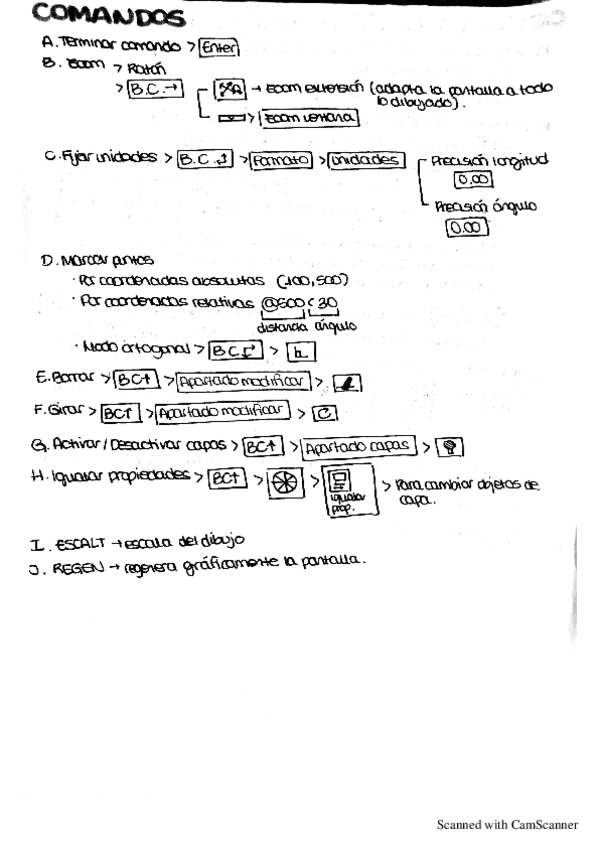 COMANDOS
A. Terminar comando > Enter
B. Zoom > Ratón
> B.C.→ → Zoom extensión (adapta la pantalla a todo
lo dibujado).
> Zoom ventana
C. Fijar unidades > B.C. > Formato > Unidades Precisión longitud
0.00
Precisión ángulo
0.00
D. Marcar puntos
· Por coordenadas absolutas (100,500)
· Por coordenadas relativas @500<30
distancia ángulo
· Modo ortogonal > BC > >
E. Borrar > BC↑ > Apartado modificar >
F. Girar > BC↑ > Apartado modificar >
G. Activar / Desactivar capas > BC↑ > Apartado capas >
H. Igualar propiedades > BC↑ > > Igualar prop. > Para cambiar objetos de
capa.
I. ESCALT → escala del dibujo
J. REGEN → regenera gráficamente la pantalla.
Scanned with CamScanner